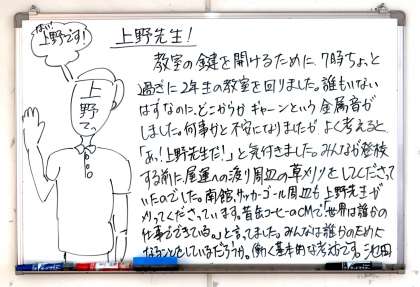 はい!
上野です!
上野
上野先生!
教室の鍵を開けるために、7時ちょっと
過ぎに2年生の教室を回りました。誰もいない
はずなのに、どこからかギャーンという金属音が
しました。何事かと不安になりましたがよく考えると、
「あ!上野先生だ!」と気付きました。みんなが登校
する前に、尾運への渡り周辺の草刈りをしてくださっ
ていたのでした。南館、サッカーゴール周辺も上野先生が
刈ってくださっています。昔缶コーヒーのCMで「世界は誰かの
仕事でできている。」と言ってました。みんなは誰かのために
なることをしているだろうか。働く基本的な考え方です。池田